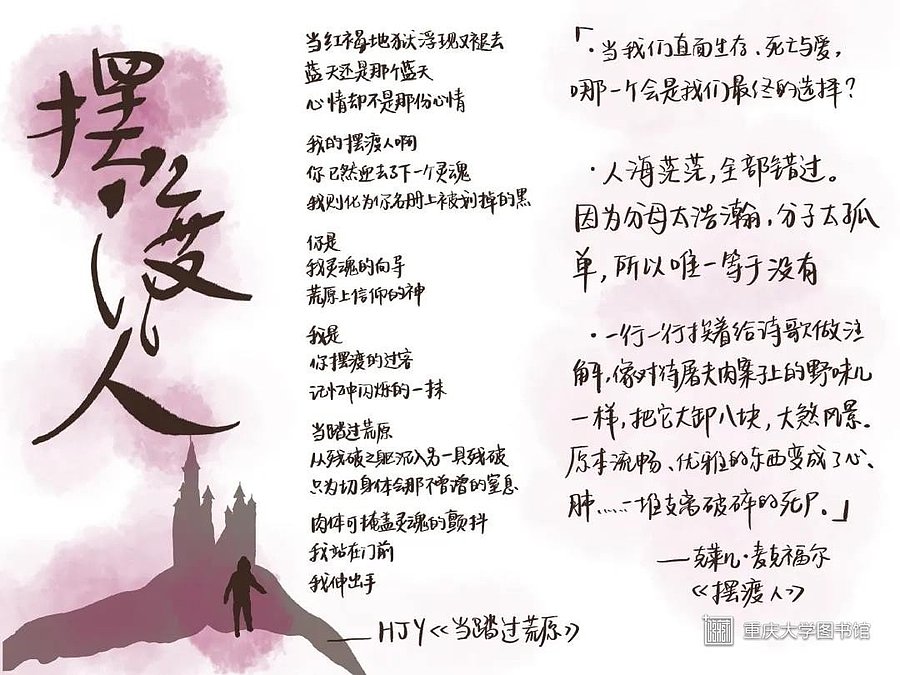 摆渡人
当红褐地狱浮现又褪去
蓝天还是那个蓝天
心情却不是那份心情
我的摆渡人啊
你已然迎去了下一个灵魂
我则化为你名册上被划掉的黑
你是
我灵魂的向导
荒原上信仰的神
我是
你摆渡的过客
记忆中闪烁的一抹
当踏过荒原
从残破之躯沉入另一具残破
只为切身体会那不懵懵的窒息
肉体可掩盖灵魂的颤抖
我站在门前
我伸出手
——HJY《当踏过荒原》
「·当我们直面生存、死亡与爱,
哪一个会是我们最终的选择?
·人海茫茫,全部错过。
因为分母太浩瀚,分子太孤
单,所以唯一等于没有
·一行一行挨着给诗歌做注
解,像对待屠夫肉案子上的野味儿
一样,把它大卸八块,大煞风景。
原本流畅、优雅的东西变成了心、
肺……一堆支离破碎的死尸。」
——克莱儿·麦克福尔
《摆渡人》
重庆大学图书馆